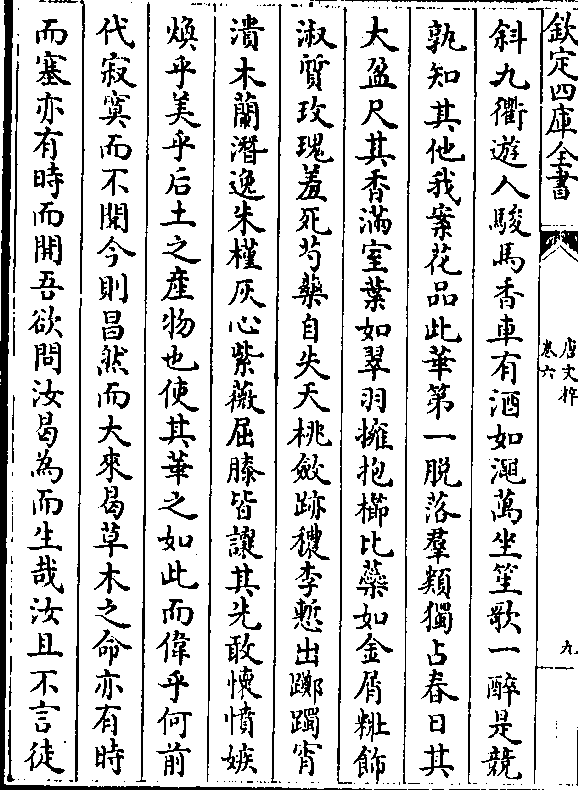 欽定四庫全書
唐文粹
卷六
九
斜九衢遊人駿馬香車有酒如澠萬坐笙歌一醉是競
孰知其他我案花品此華第一脱落羣類獨占春日其
大盈尺其香滿室葉如翠羽擁抱櫛比蘂如金屑糚飾
淑質玫瑰羞死芍藥自失夭桃斂跡穠李慙出躑躅宵
潰木蘭潛逸朱槿灰心紫薇屈膝皆讓其先敢懷憤嫉
煥乎美乎后土之産物也使其華之如此而偉乎何前
代寂寞而不聞今則昌然而大來曷草木之命亦有時
而塞亦有時而開吾欲問汝曷為而生哉汝且不言徒